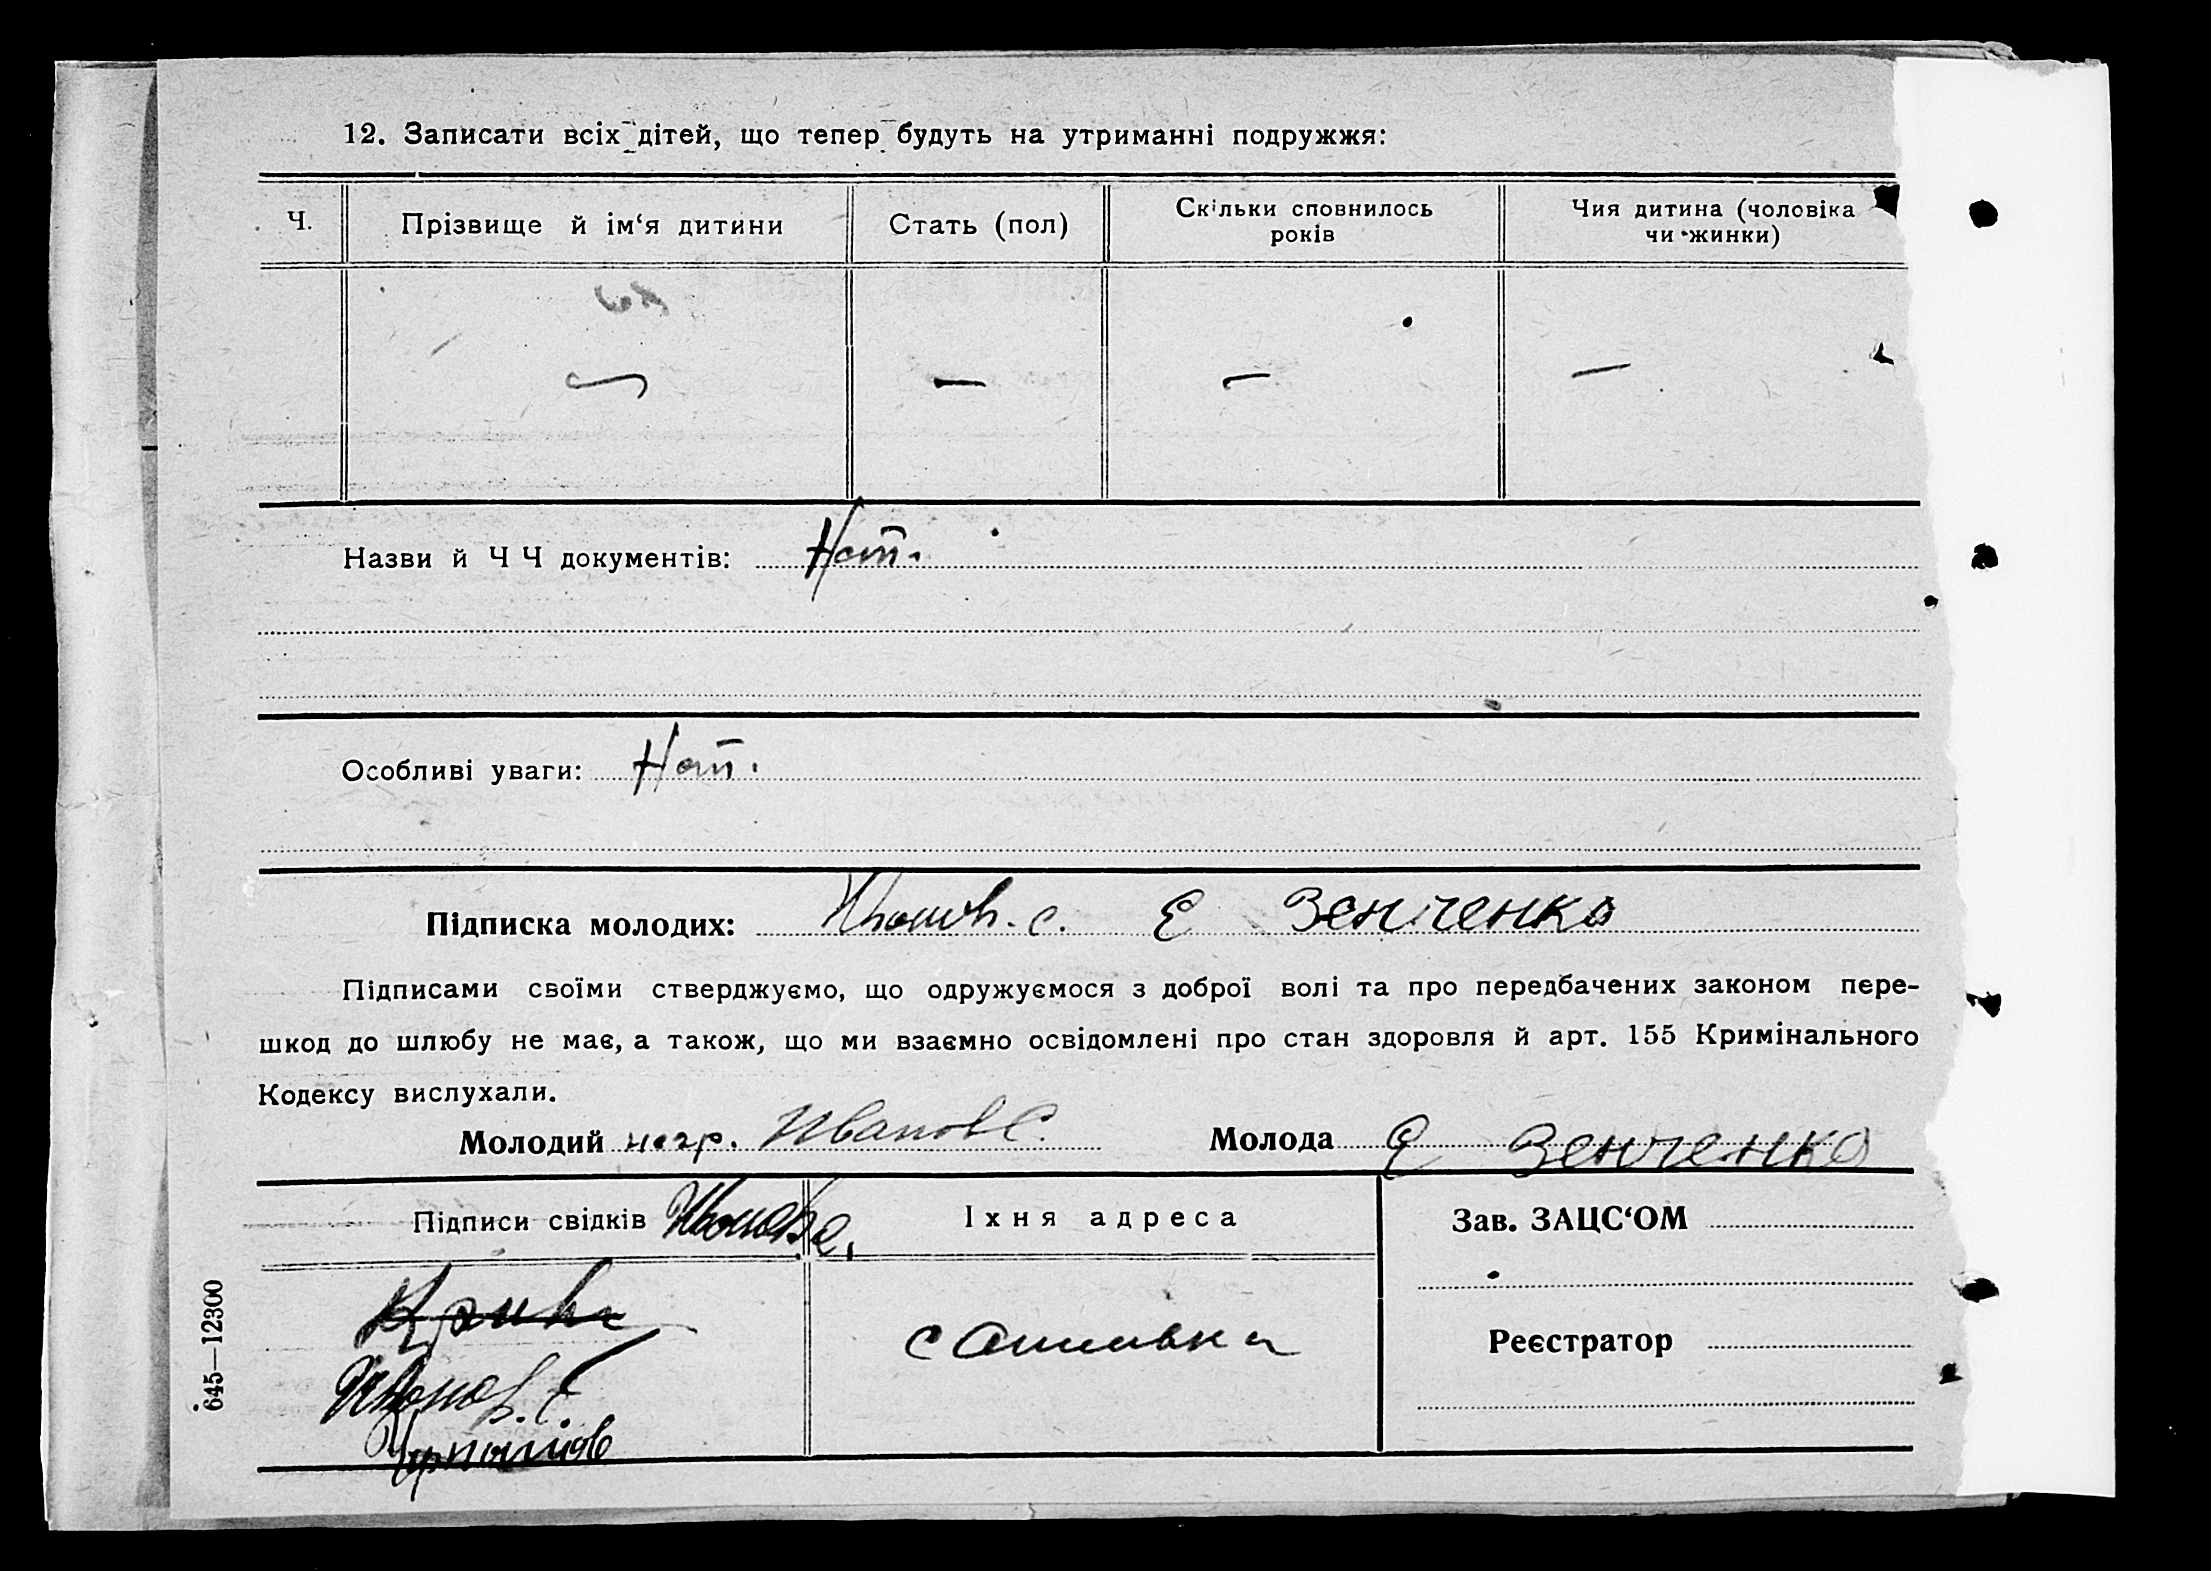 12. Записати всіх дітей, що тепер будуть на утриманні подружжя:
Ч.
Прізвище й ім‘я дитини
Стать (пол)
Скільки сповнилось
років
Чия дитина (чоловіка
чи жинки)
Назви й Ч Ч документів: Нет.
Особливі уваги: Нет.
Підписка молодих: Иванов. с. Е Зенченко
Підписами своїми стверджуємо, що одружуємося з доброї волі та про передбачених законом пере-
шкод до шлюбу не має, а також, що ми взаємно освідомлені про стан здоровля й арт. 155 Кримінального
Кодексу вислухали.
Молодий Иванов С. Молода Е Зенченко
Підписи свідків
Їхня адреса
Зав. ЗАЦС‘ОМ
Иванов. С.
Реєстратор
645—12300